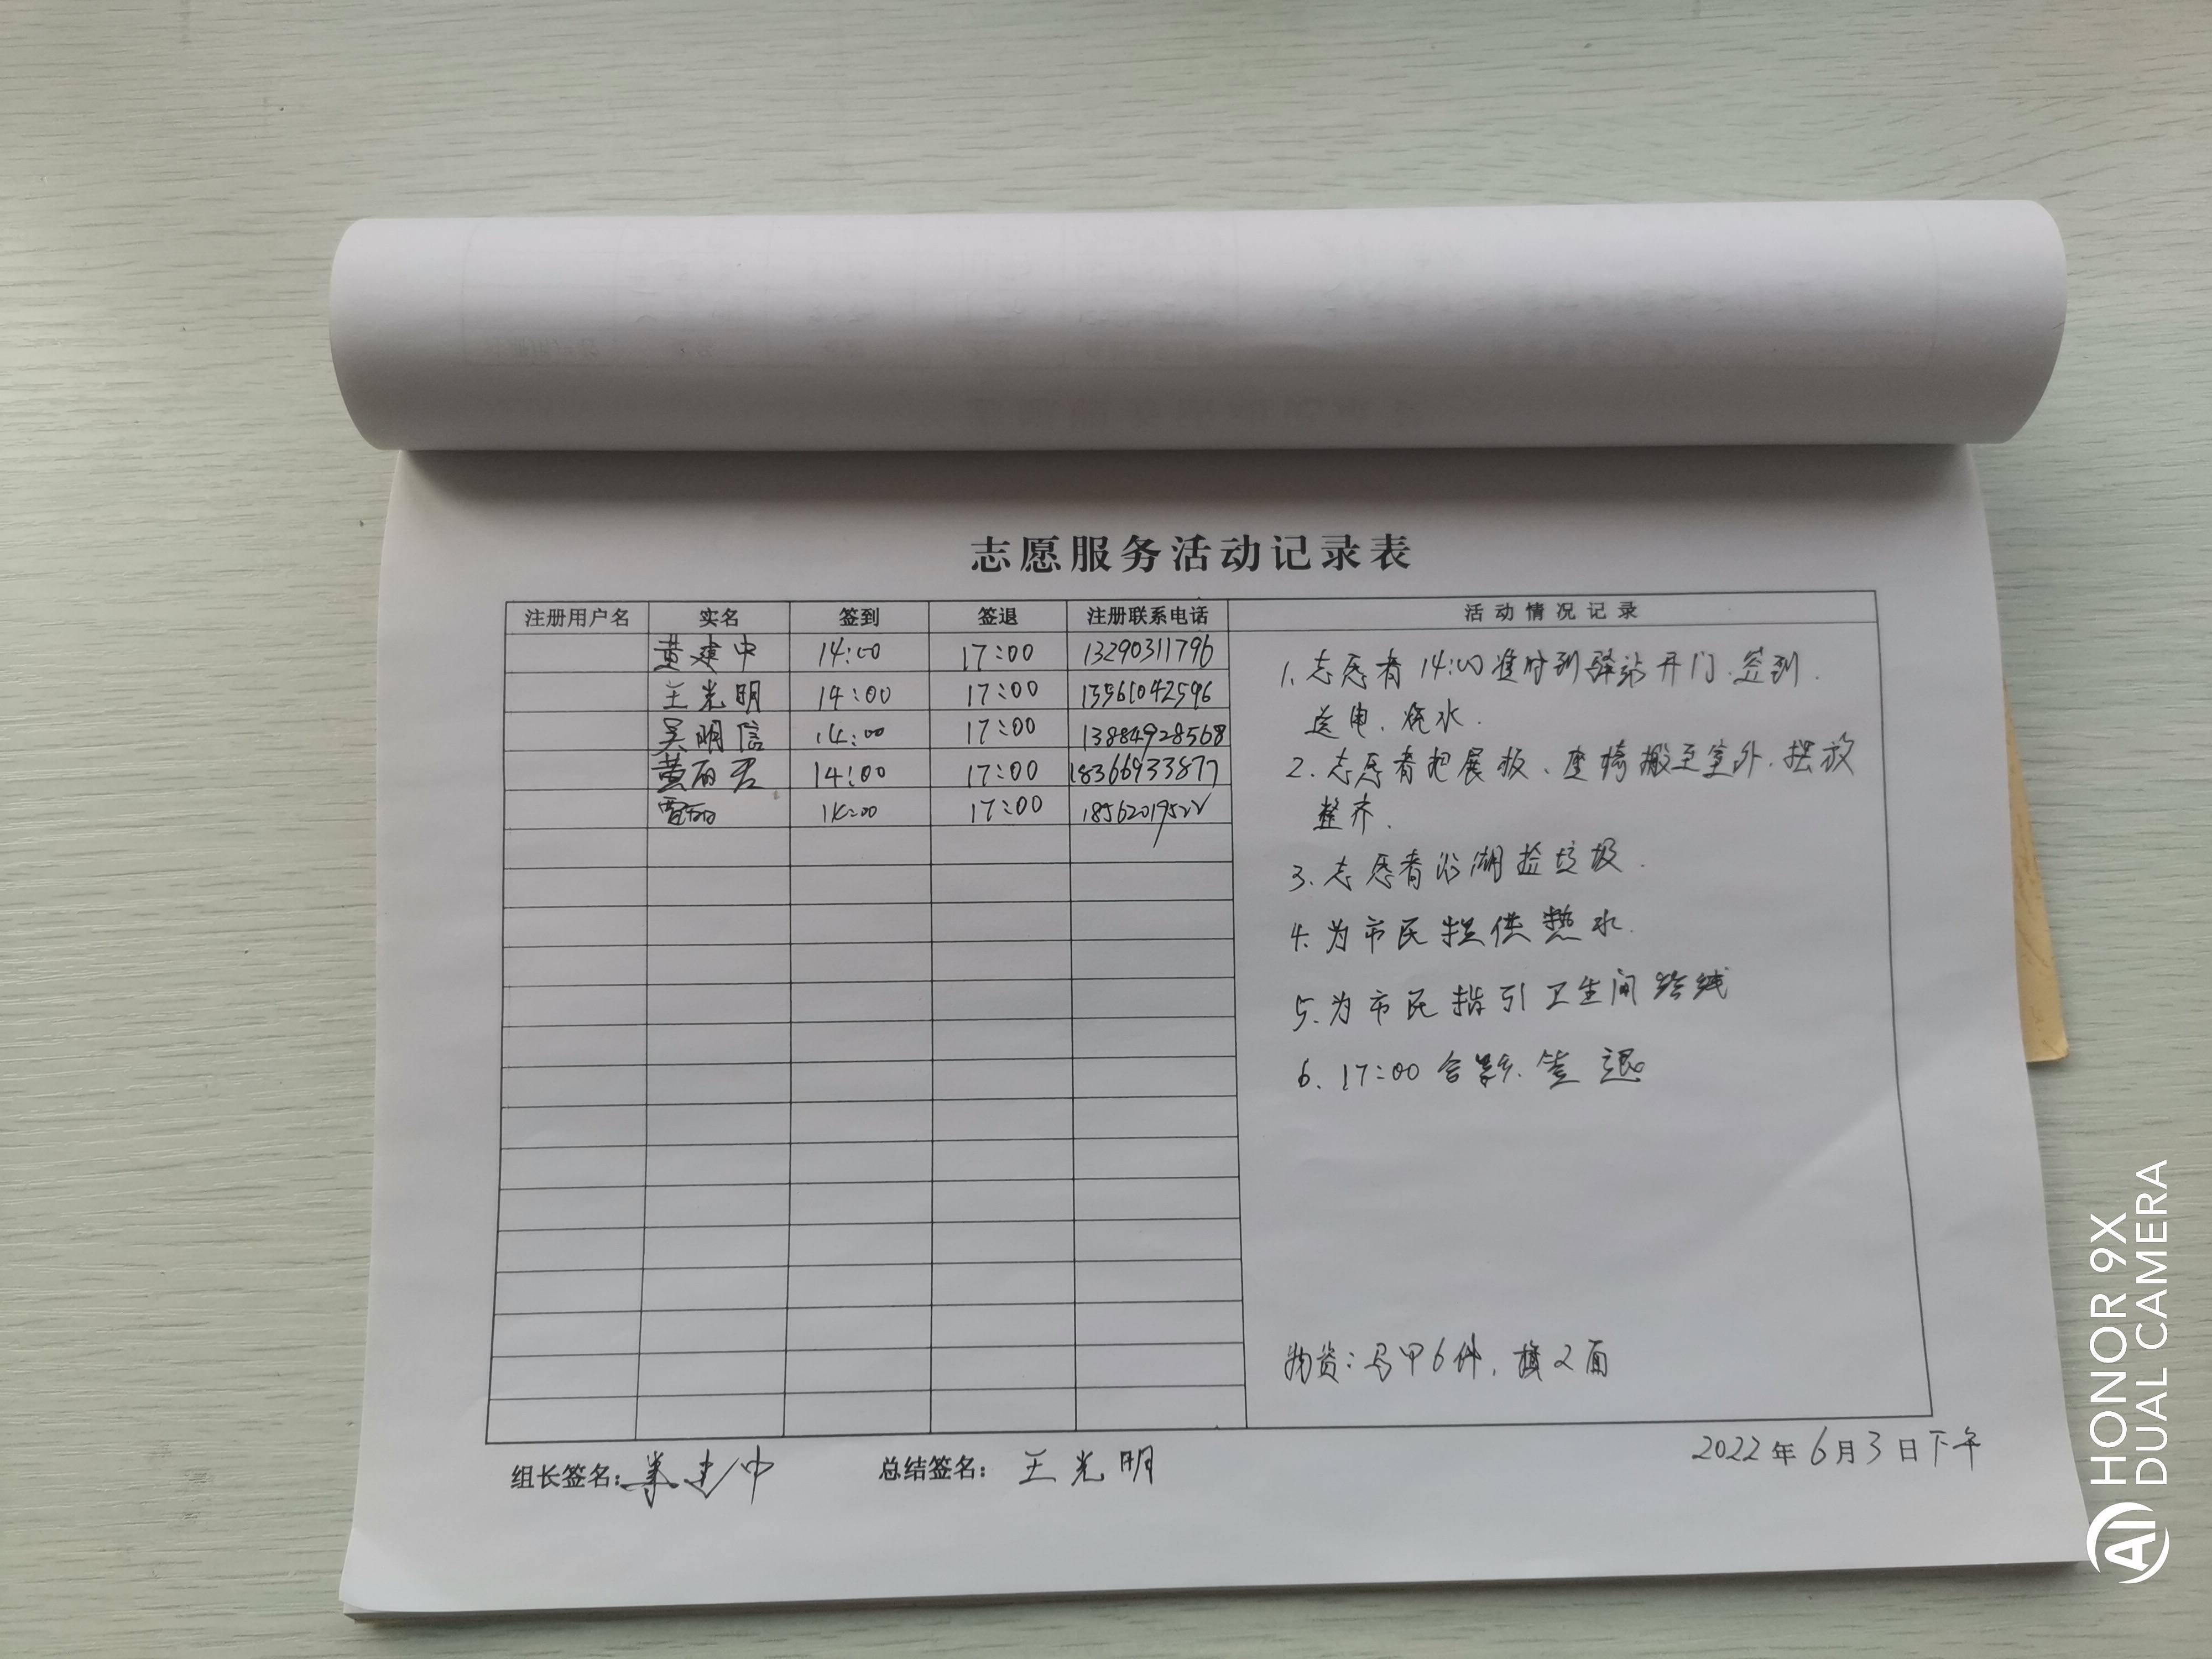 志愿服务活动记录表
注册用户名 实名 签到 签退 注册联系电话 活动情况记录
黄建中 14:00 17:00 13290311796
王光明 14:00 17:00 13561042596
吴明信 14:00 17:00 13884928568
黄丽君 14:00 17:00 18366933877
14:00 17:00 18562019522
1.志愿者14:00准时到驿站开门.签到.
送电、烧水.
2.志愿者把展板、座椅搬至室外.摆放
整齐.
3.志愿者沿湖捡垃圾.
4.为市民提供热水.
5.为市民指引卫生间路线
6.17:00合影.签退
物资:马甲6件,旗2面
组长签名:黄建中 总结签名:王光明 2022年6月3日下午
HONOR 9X
AI DUAL CAMERA